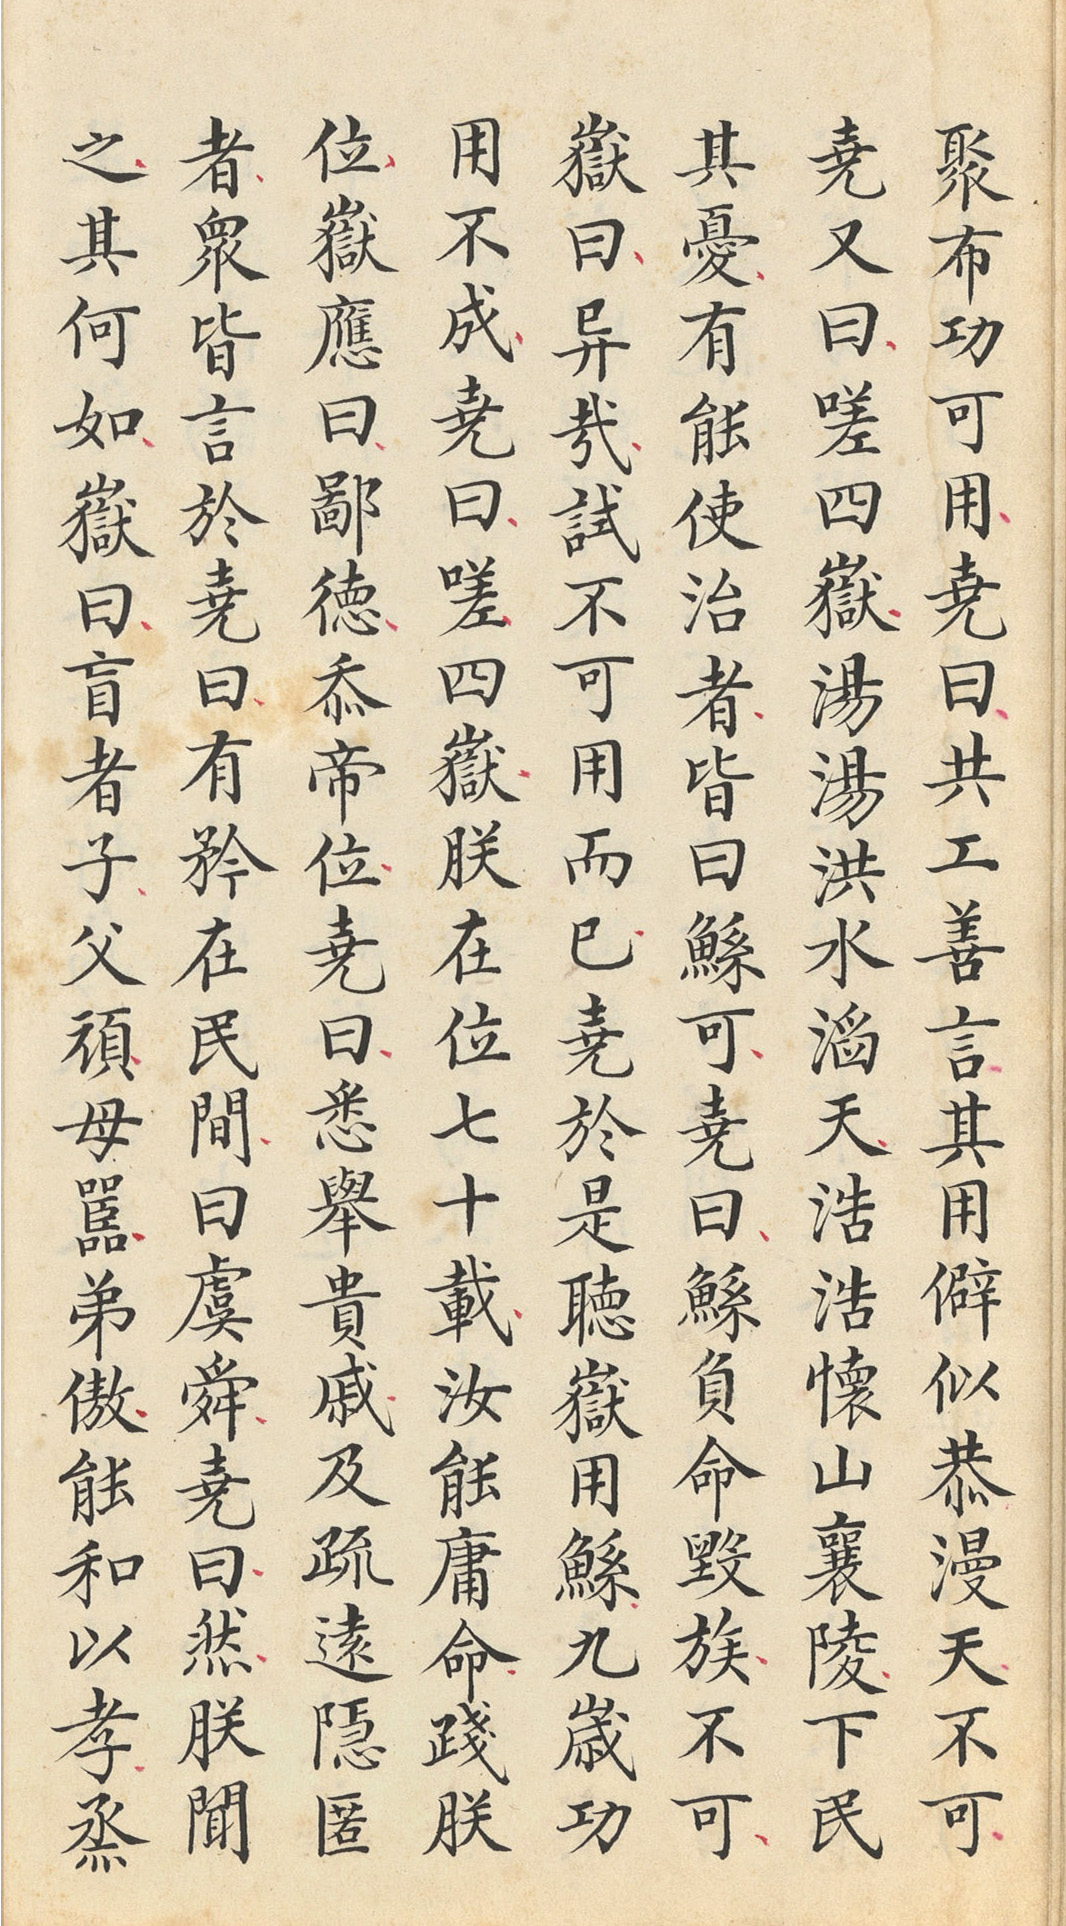 聚布功可用堯曰共工善言其用僻似恭漫天不可
堯又曰嗟四嶽湯湯洪水滔天浩浩懷山襄陵下民
其憂有能使治者皆曰鯀可堯曰鯀負命毀族不可
嶽曰异哉試不可用而已堯於是聽嶽用鯀九歲功
用不成堯曰嗟四嶽朕在位七十載汝能庸命踐朕
位嶽應曰鄙德忝帝位堯曰悉舉貴戚及疏遠隱匿
者眾皆言於堯曰有矜在民間曰虞舜堯曰然朕聞
之其何如嶽曰盲者子父頑母嚚弟傲能和以孝烝